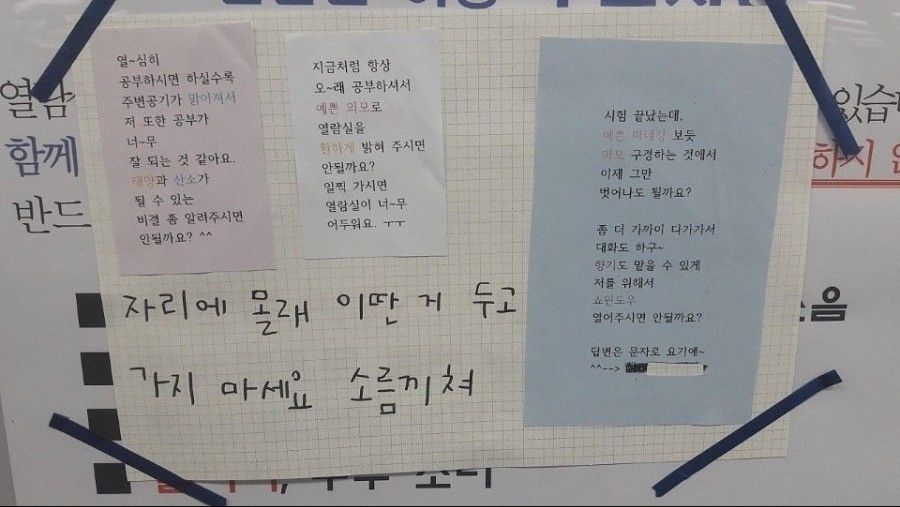 열~심히
공부하시면 하실수록
주변공기가 맑아져서
저 또한 공부가
너~무
잘 되는 것 같아요.
태양과 산소가
될 수 있는
비결 좀 알려주시면
안될까요? ^^
지금처럼 항상
오~래 공부하셔서
예쁜 외모로
열람실을
환하게 밝혀 주시면
안될까요?
일찍 가시면
열람실이 너~무
어두워요. ㅜㅜ
시험 끝났는데,
예쁜 마네킹 보듯
미모 구경하는 것에서
이제 그만
벗어나도 될까요?
좀 더 가까이 다가가서
대화도 하구~
향기도 맡을 수 있게
저를 위해서
쇼윈도우
열어주시면 안될까요?
답변은 문자로 요기에~
^^-->
자리에 몰래 이딴 거 두고
가지 마세요 소름끼쳐
열람
있습
함께
하시
반드
소음
소리